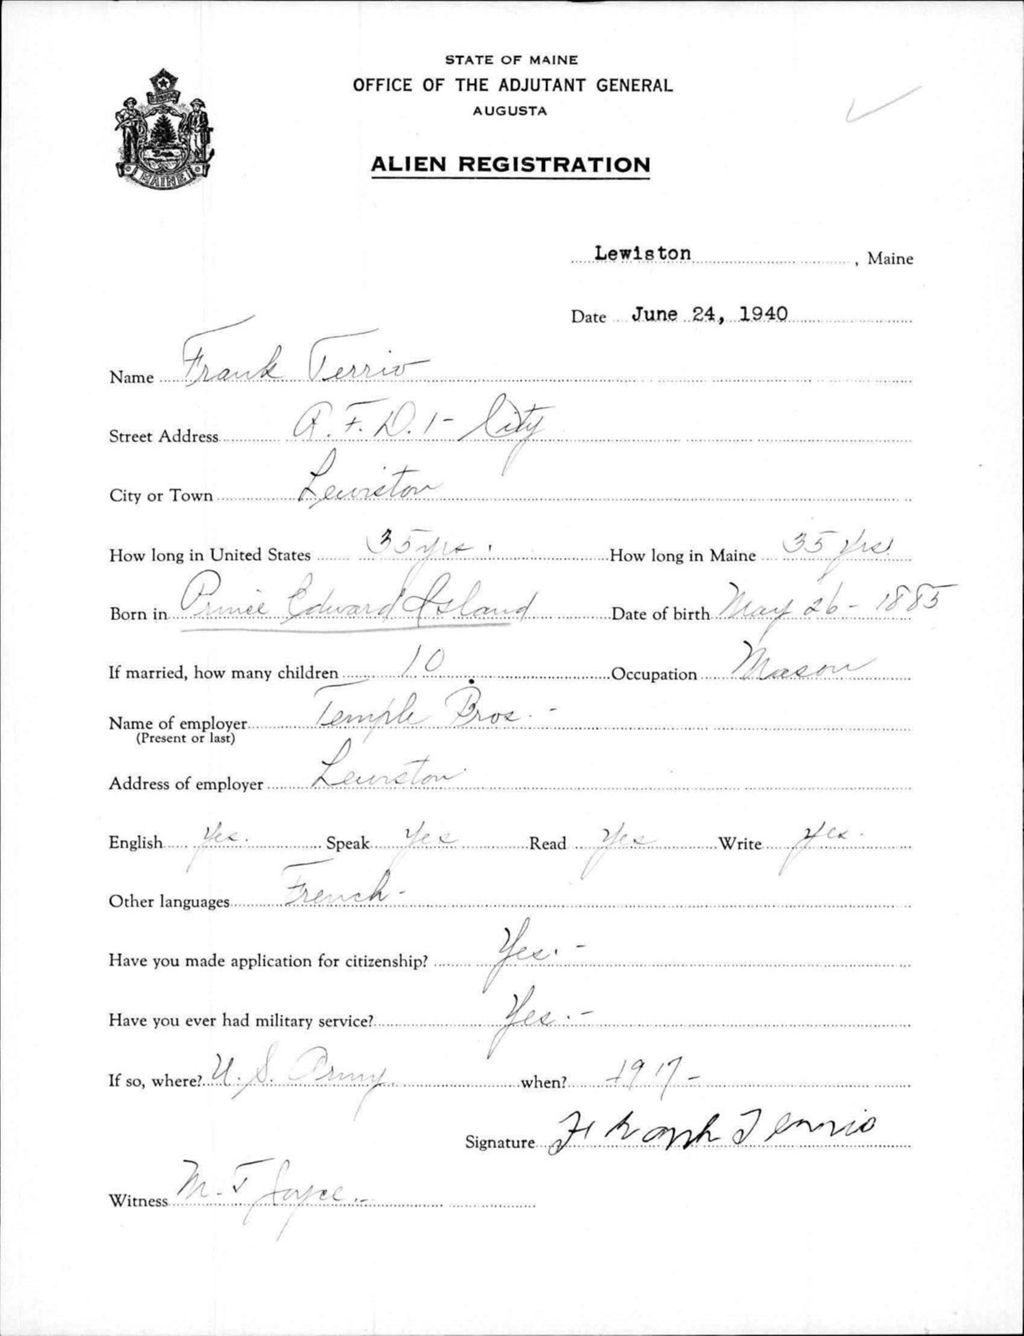 STATE OF MAINE
OFFICE OF THE ADJUTANT GENERAL
AUGUSTA
ALIEN REGISTRATION
MAINE
Lewiston, Maine
Date June 24, 1940
Name Frank Terrio
Street Address R.F.D. 1- City
City or Town Lewiston
How long in United States 35 yrs. How long in Maine 35 yrs
Born in Prince Edward Island Date of birth May 26 - 1885
If married, how many children 10 Occupation Mason
Name of employer Temple Bros. -
(Present or last)
Address of employer Lewiston
English Yes. Speak Yes Read Yes Write Yes.
Other languages French -
Have you made application for citizenship? Yes. -
Have you ever had military service? Yes. -
If so, where? U. S. Army when? 1917 -
Signature Frank Terrio
Witness M. T Joyce